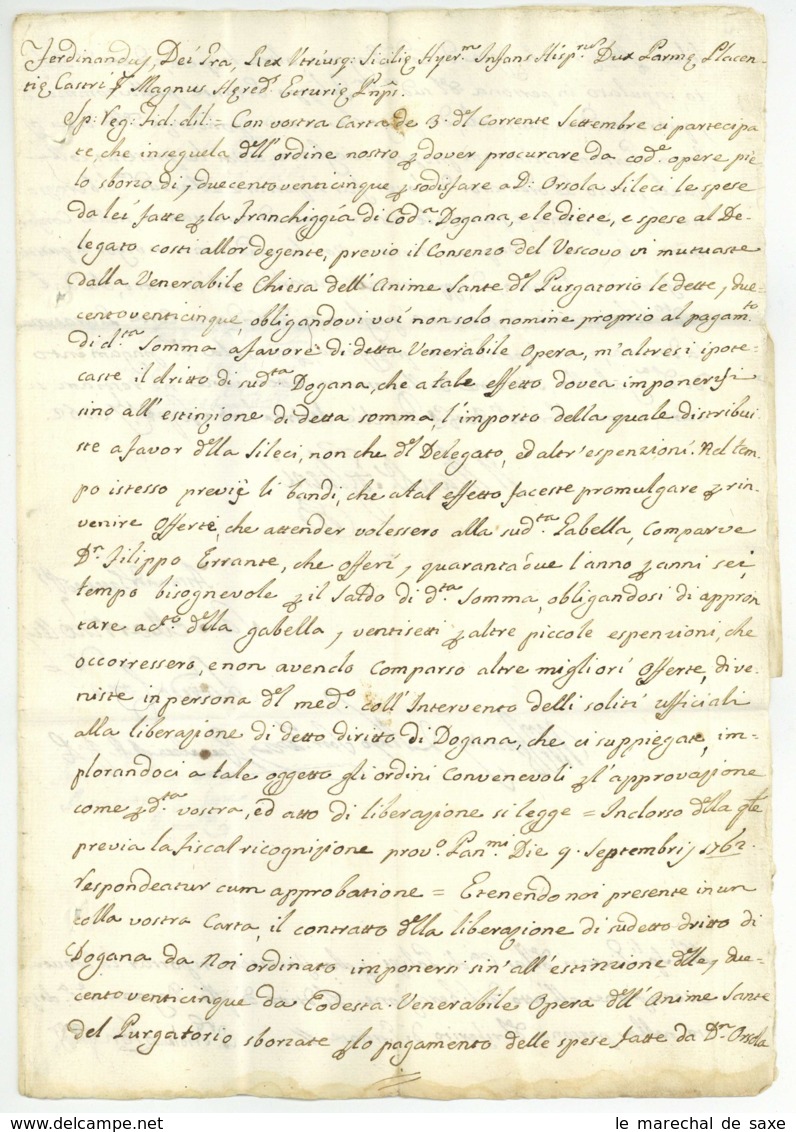 Ferdinandus, Dei Gra, Rex Utriusq: Sicilię Hyer.m Infans Hisp.rum Dux Parmę Placen-
tię, Castri & Magnus Hęred.s Etrurię Pnps.
Sp: Reg: Fid: dil: = Con vostra Carta de 3. dl Corrente Settembre ci partecipa
te, che inseguela dll'ordine nostro p dover procurare da cod.e opere pie
lo sborzo di, duecentoventicinque p sodisfare a D: Orsola Sileci le spese
da lei fatte p la Franchiggia di Cod.a Dogana, e le diete, e spese al De-
legato costi allor degente, previo il Consenzo del Vescovo vi mutuaste
dalla Venerabile Chiesa dell'Anime Sante dl Purgatorio le dette, due-
centoventicinque, obligandovi voi non solo nomine proprio al pagam.to
di d.ta Somma a favore di detta Venerabile Opera, m'altresi ipote-
caste il dritto di sud.ta Dogana, che a tale effetto dovea imponersi
sino all'estinzione di detta somma, l'importo della quale distribui
ste a favor dlla Sileci, non che dl Delegato, ed altr'espenzioni. Nel tem-
po istesso previj li bandi, che a tal effetto faceste promulgare p rin-
venire Offerte, che attender volessero alla sud.ta Gabella, Comparve
D.n Filippo Errante, che offerì, quarantadue l'anno p anni sei,
tempo bisognevole p il Saldo di d.ta Somma, obligandosi di appron
tare ac.to dlla gabella, ventisetti p altre piccole espenzioni, che
occorressero, e non avendo Comparso altre migliori Offerte, dive-
niste in persona dl med.o coll'Intervento delli soliti ufficiali
alla liberazione di detto diritto di Dogana, che ci suppiegate, im-
plorandoci a tale oggetto gli ordini Convenevoli p l'approvazione
come p d.ta vostra, ed atto di liberazione si legge = Inclorso dlla qle
previa la fiscal ricognizione prov.o Pan.mi Die 9. Septembrij 1762.
respondeatur cum approbatione = E tenendo noi presente in un
colla vostra Carta, il contratto dlla liberazione di sudetto dritto di
Dogana da Noi ordinato imponersi sin'all'estinzione dlle, due-
centoventicinque da Codesta Venerabile Opera dll'Anime Sante
del Purgatorio sborzate p lo pagamento delle spese fatte da D.n Orsola
le marechal de saxe